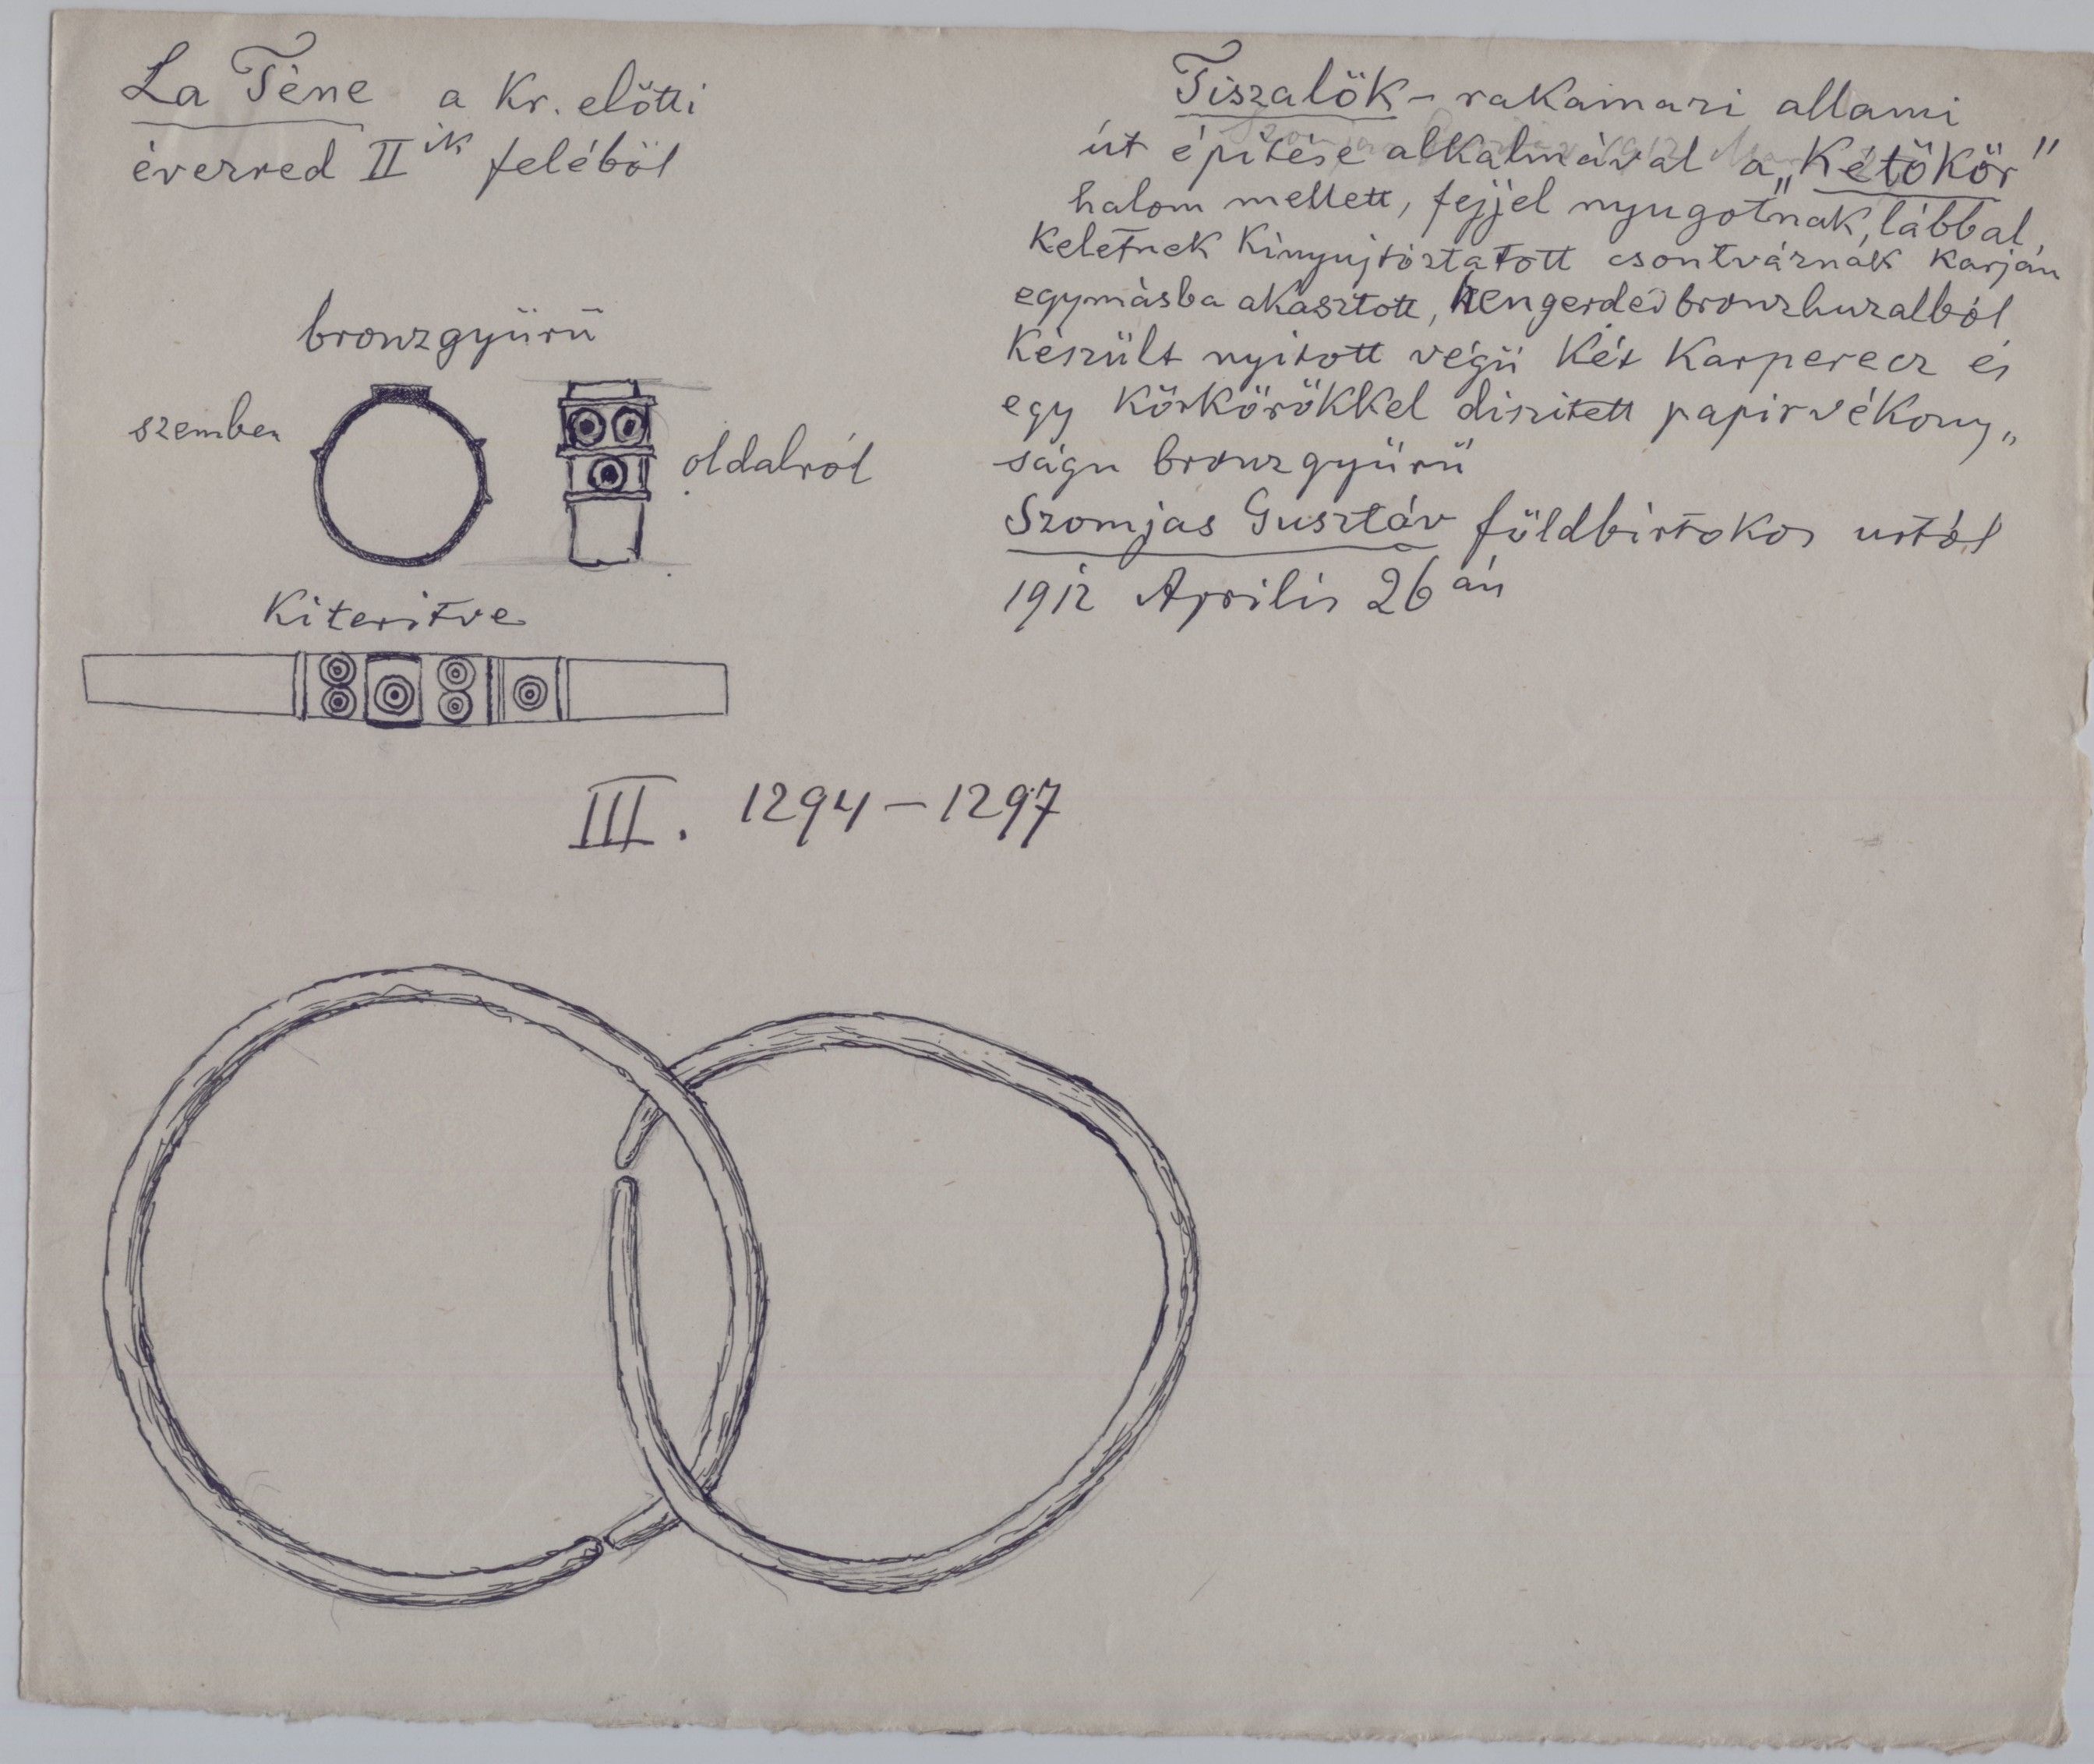 La Tène a Kr. előtti
évezred II ik feléből
bronzgyürü
szemben
oldalról
Kiteritve
III. 1294-1297
Tiszalök - rakamazi allami
út épitése alkalmával a „Kétökör"
halom mellett, fejjel nyugotnak, lábbal
Keletnek Kinyujtóztatott csontváznak karján
egymásba akasztott, hengerded bronzhuzalból
Készült nyitott végü Két Karperecz és
egy Körkörökkel diszitett papirvékony„
ságu bronzgyürü
Szomjas Gusztáv földbirtokos urtól
1912 Aprilis 26 án